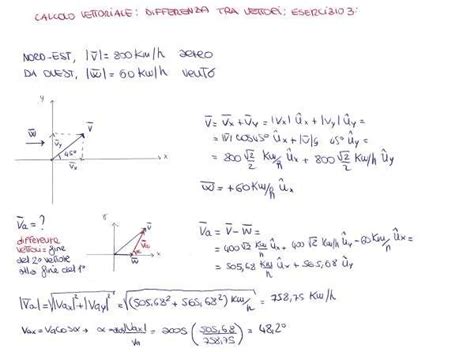 CALCOLO VETTORIALE: DIFFERENZA TRA VETTORI: ESERCIZIO 3:
NORD-EST, |v̅| = 800 Km/h aereo
DA OVEST, |w̅| = 60 Km/h vento
y
w̅
v̅y
v̅
45°
v̅x
x
v̅ = v̅x + v̅y = |vx| ûx + |vy| ûy =
= |v| cos45° ûx + |v| s 45° ûy =
= 800 √2/2 Km/h ûx + 800 √2/2 Km/h ûy
w̅ = +60 Km/h ûx
v̅a = ?
differenza
vettori = fine
del 2° vettore
alla fine del 1°
v̅
v̅a
w̅
x
v̅a = v̅ - w̅ =
= 400√2 Km/h ûx + 400√2 Km/h ûy - 60 Km/h ûx =
= 505,68 Km/h ûx + 565,68 ûy
|v̅a| = √|vax|² + |vay|² = √(505,68² + 565,68²) Km/h = 758,75 Km/h
vax = va cos α → α = acos |vax|/va = acos (505,68/758,75) = 48,2°